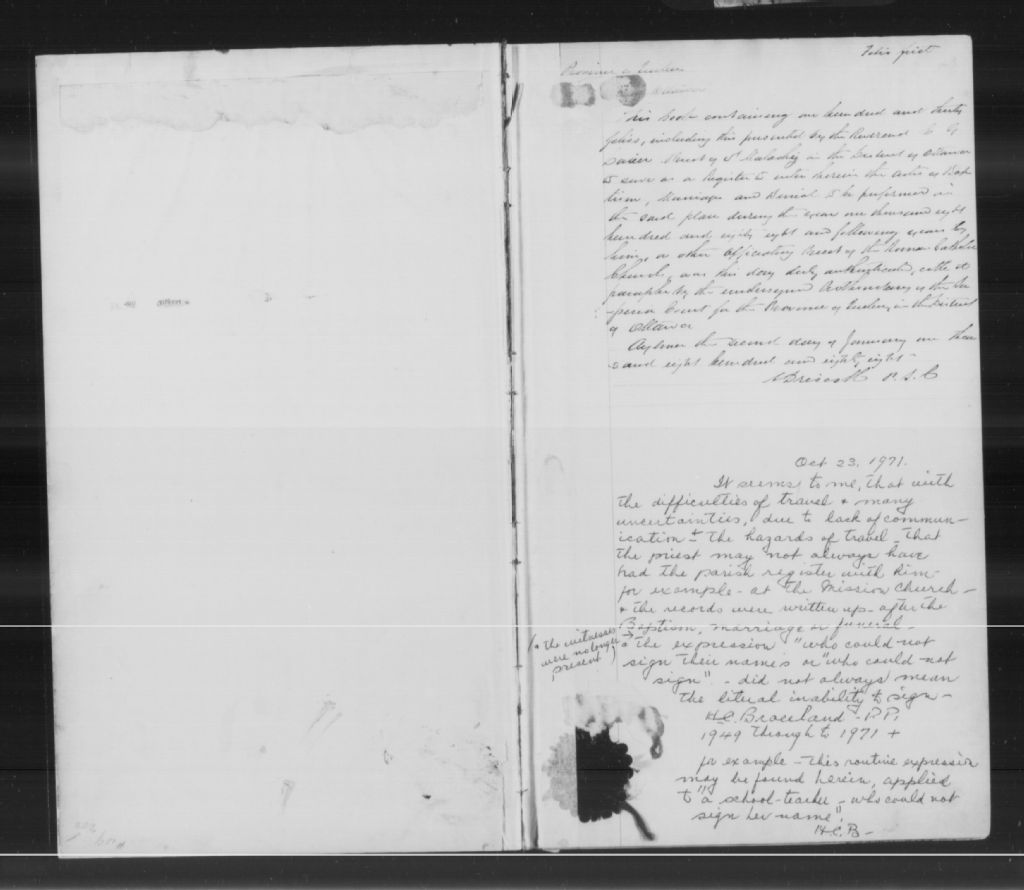 Folio first
Province of Quebec
This book containing one hundred and thirty
folios, including this presented by the Reverend
Priest of St Malachy in the District of Ottawa
to serve as a Register to enter herein the acts of Bap
tism, Marriages and Burial to be performed in
the said place during the year one thousand eight
hundred and eighty eight and following years by
him, or other officiating Priest of the Roman Catholic
Church, was this day duly authenticated,
paraphed by the undersigned Prothonotary of the Su
-perior Court for the Province of Quebec, in the District
of Ottawa
Aylmer the second day of January one thou
sand eight hundred and eighty eight
Driscoll P. S. C
Oct 23, 1971.
It seems to me, that with
the difficulties of travel + many
uncertainties, due to lack of commun-
ication + the hazards of travel - that
the priest may not always have
had the parish register with him-
for example - at the Mission Church -
+ the records were written up - after the
Baptism, marriage or funeral -
(+ the witnesses
were no longer
present)
+ the expression "who could not
sign their names or "who could not
sign" - did not always mean
the literal inability to sign -
H.C. Braceland - P.P.
1949 through to 1971 +
for example - this routine expression
may be found herein, applied
to "a school-teacher - who could not
sign her name".
H.C.B-